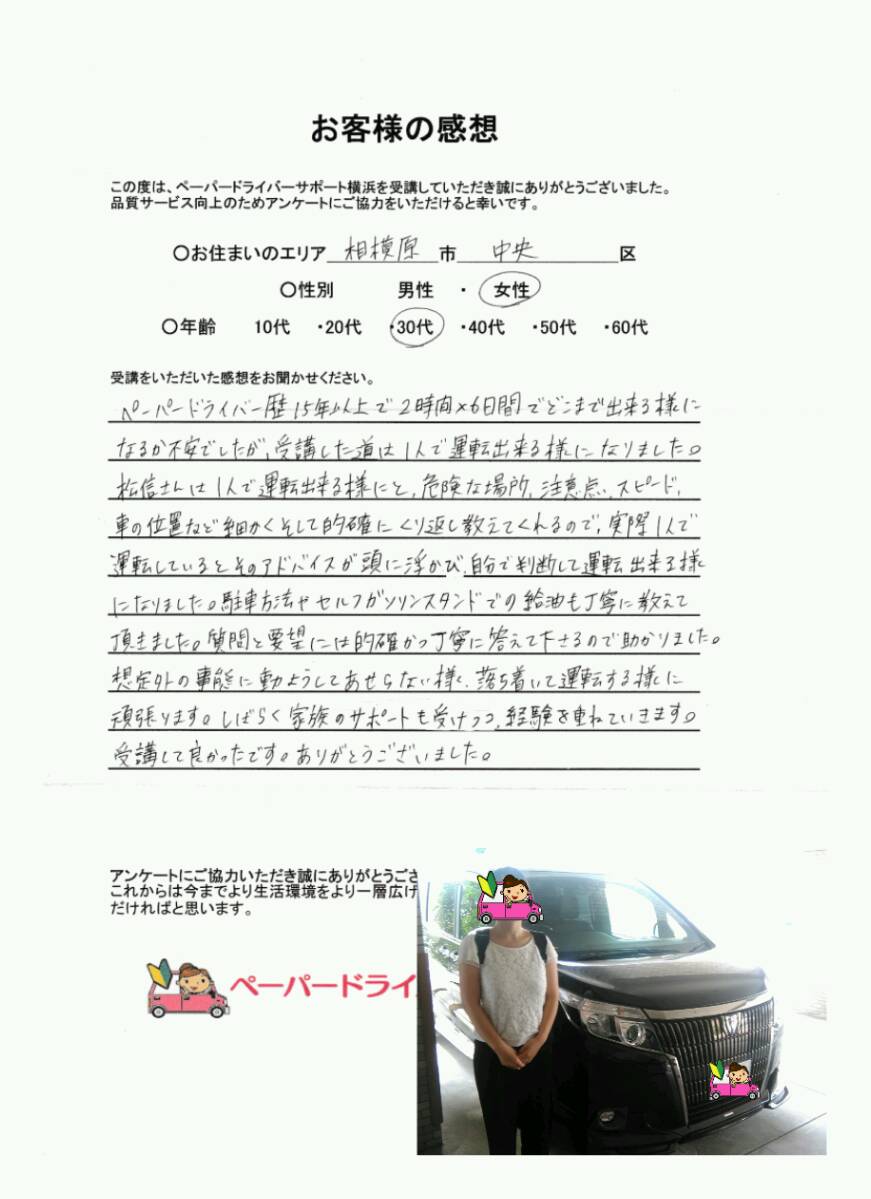 お客様の感想
この度は、ペーパードライバーサポート横浜を受講していただき誠にありがとうございました。
品質サービス向上のためアンケートにご協力をいただけると幸いです。
○お住まいのエリア 相模原 市 中央 区
○性別 男性 ・ 女性
○年齢 10代 ・20代 ・30代 ・40代 ・50代 ・60代
受講をいただいた感想をお聞かせください。
ペーパードライバー歴15年以上で2時間×6日間でどこまで出来る様に
なるか不安でしたが、受講した道は1人で運転出来る様になりました。
松信さんは1人で運転出来る様にと、危険な場所、注意点、スピード、
車の位置など細かくそして的確にくり返し教えてくれるので、実際1人で
運転しているとそのアドバイスが頭に浮かび自分で判断して運転出来る様
になりました。駐車方法やセルフガソリンスタンドでの給油も丁寧に教えて
頂きました。質問と要望には的確かつ丁寧に答えて下さるので助かりました。
想定外の事態に動ようしてあせらない様に、落ち着いて運転する様に
頑張ります。しばらく家族のサポートも受けつつ、経験を重ねていきます。
受講して良かったです。ありがとうございました。
アンケートにご協力いただき誠にありがとうござ
これからは今までより生活環境をより一層広げ
だければと思います。
ペーパードライ